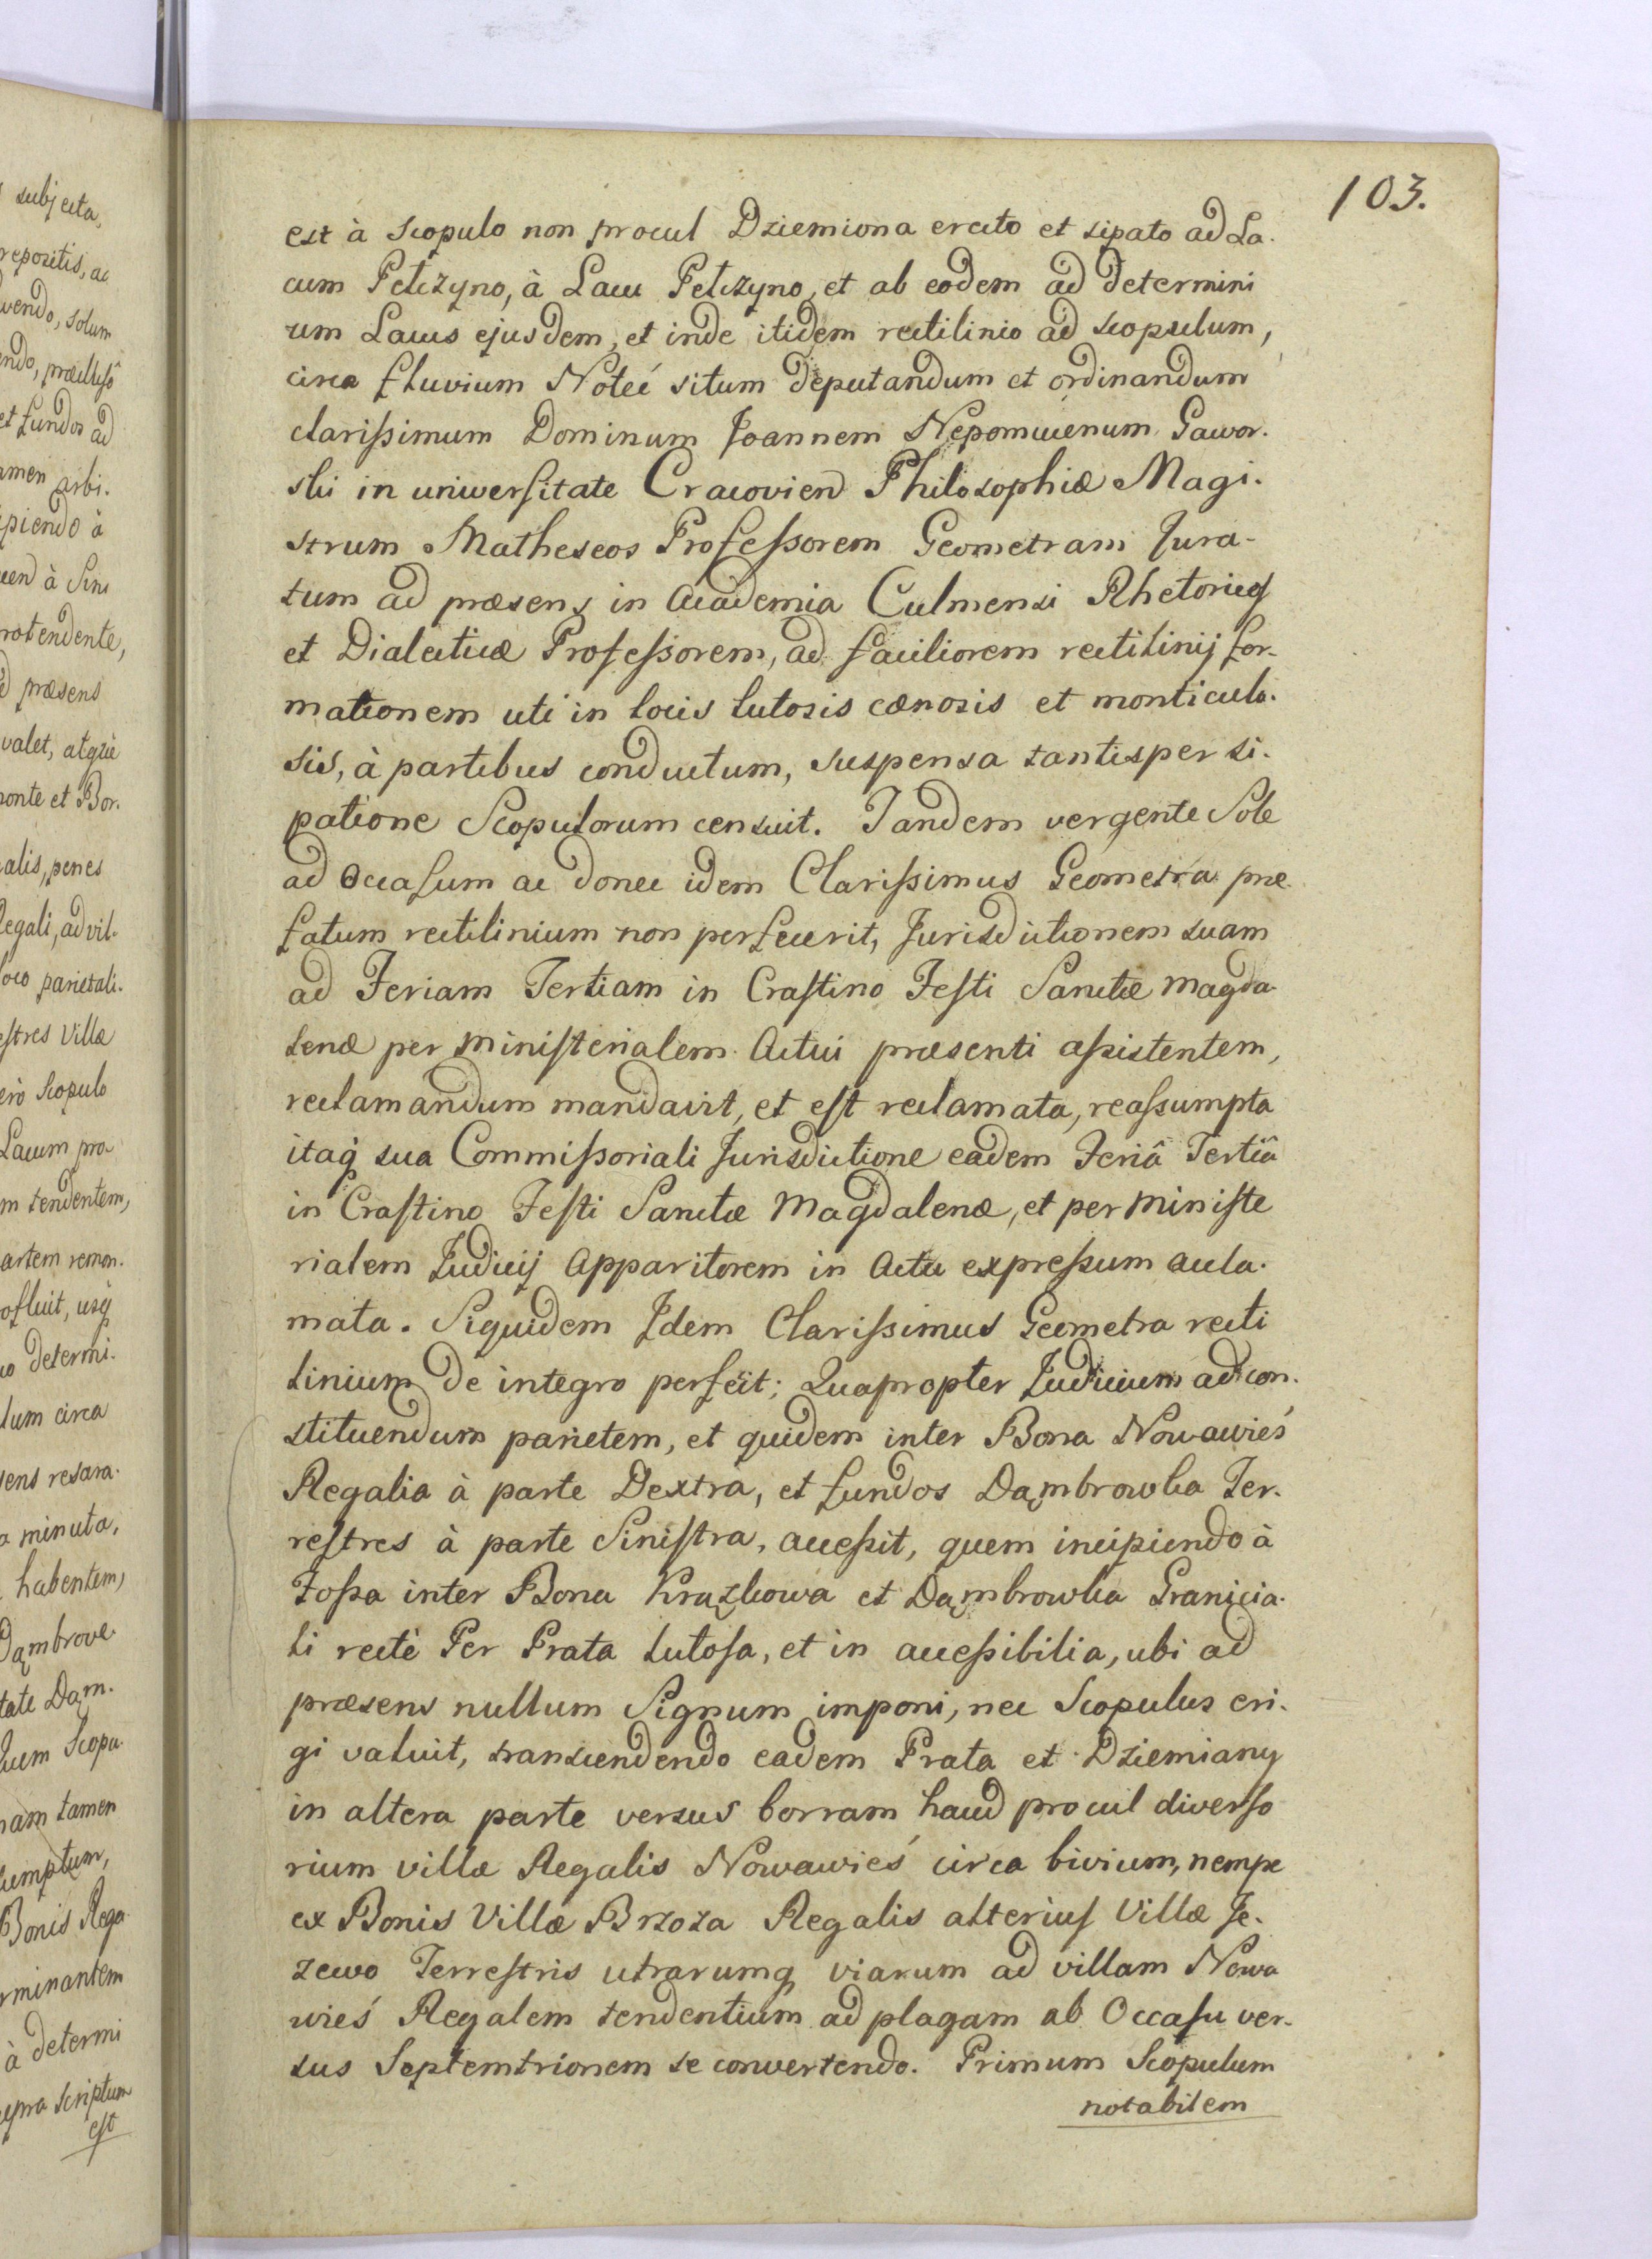 subjecta,
repositis, ac
vendo, solum
endo, præclusô
et fundos ad
amen arbi.
piendo à
rotendente,
præsens
valet, atquè
monte et Bor.
alis, penes
Regali, ad vil.
loco parietali.
estres Villæ
erò Scopulo
Lacum pro
m tendentem,
artem remon.
ofluit, usq
co determi.
lum circa
sens resara.
a minuta,
habentem,
Dąmbrove.
tate Dąm.
Scopu.
nam tamen
umptum,
Bonis Rega
rminantem
à determi
supra scriptum
est
103.
est à Scopulo non procul Dziemiona erecto et sipato ad La.
cum Pelczyno, à Lacu Pelczyno, et ab eodem ad determini
um Lacus ejusdem, et inde itidem rectilinio ad scopulum,
circa fluvium Noteć situm deputandum et ordinandum
clarissimum Dominum Joannem Nepomucenum Gawor.
ski in universitate Cracovien Philosophiæ Magi.
strum Matheseos Professorem Geometram Jura-
tum ad præsens in Academia Culmensi Rhetoricæ
et Dialecticæ Professorem, ad faciliorem rectilinij for-
mationem uti in locis lutosis cænosis et monticulo.
sis, à partibus conductum, suspensa tantisper si.
patione Scopulorum censuit. Tandem vergente Sole
ad Occasum ac donec idem Clarissimus Geometra præ.
fatum rectilinium non perfecerit, Jurisdictionem suam
ad Feriam Tertiam in Crastino Festi Sanctæ Magda
lenæ per Ministerialem Actui præsenti assistentem,
reclamandum mandavit, et est reclamata, reassumpta
itaq sua Commissoriali Jurisdictione eadem Feriâ Tertiâ
in Crastino Festi Sanctæ Magdalenæ, et per Ministe
rialem Judicij Apparitorem in Actu expressum accla.
mata. Siquidem Idem Clarissimus Geometra recti
linium de integro perfecit; Quapropter Judicium ad con.
stituendum parietem, et quidem inter Bona Nowawieś
Regalia à parte Dextra, et fundos Dąmbrowka Ter.
restres à parte Sinistra, accessit, quem incipiendo à
Fossa inter Bona Krązkowa et Dąmbrowka Granicia.
li rectè Per Prata lutosa, et in accessibilia, ubi ad
præsens nullum Signum imponi, nec Scopulus eri.
gi valuit, transcendendo eadem Prata et Dziemiany
in altera parte versus borram haud procul diverso
rium villæ Regalis Nowawieś circa bivium, nempe
ex Bonis Villæ Brzoza Regalis alterius Villæ Je.
zewo Terrestris utrarumq viarum ad villam Nowa
wieś Regalem tendentium ad plagam ab Occasu ver.
sus Septemtrionem se convertendo. Primum Scopulum
notabilem